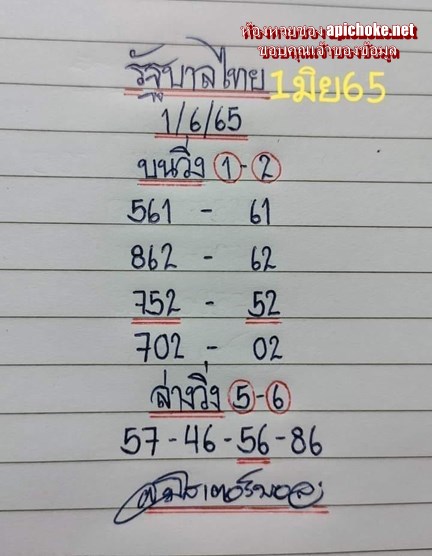 ห้องหวยซอง apichoke.net
ขอบคุณเจ้าของข้อมูล
รัฐบาลไทย 1มิย65
1/6/65
บนวิ่ง 1-2
561 - 61
862 - 62
752 - 52
702 - 02
ล่างวิ่ง 5-6
57-46-56-86